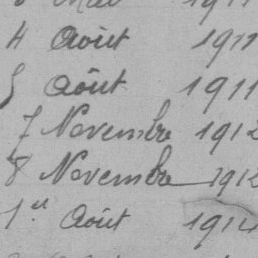 Mai 1911
4 Août 1911
5 Août 1911
7 Novembre 1912
8 Novembre 1912
1er Août 1914